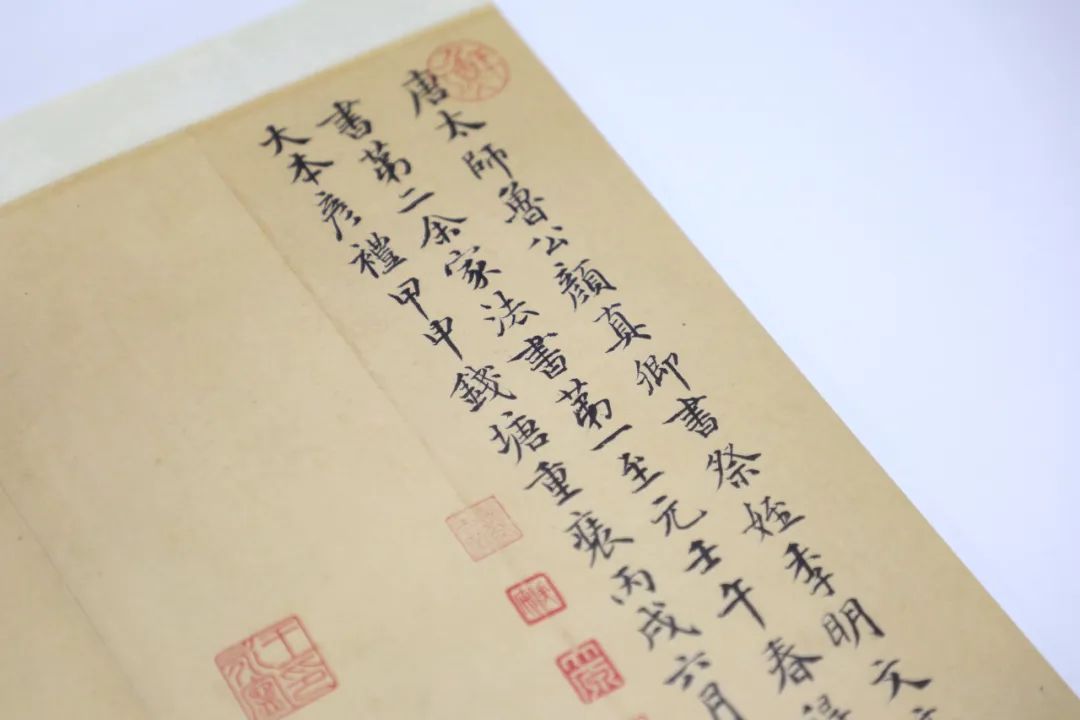 唐太師魯公顏真卿書祭姪季明文
書第二余家法書第一至元壬午春得
大本彥禮甲申錢塘重裝丙戌六月